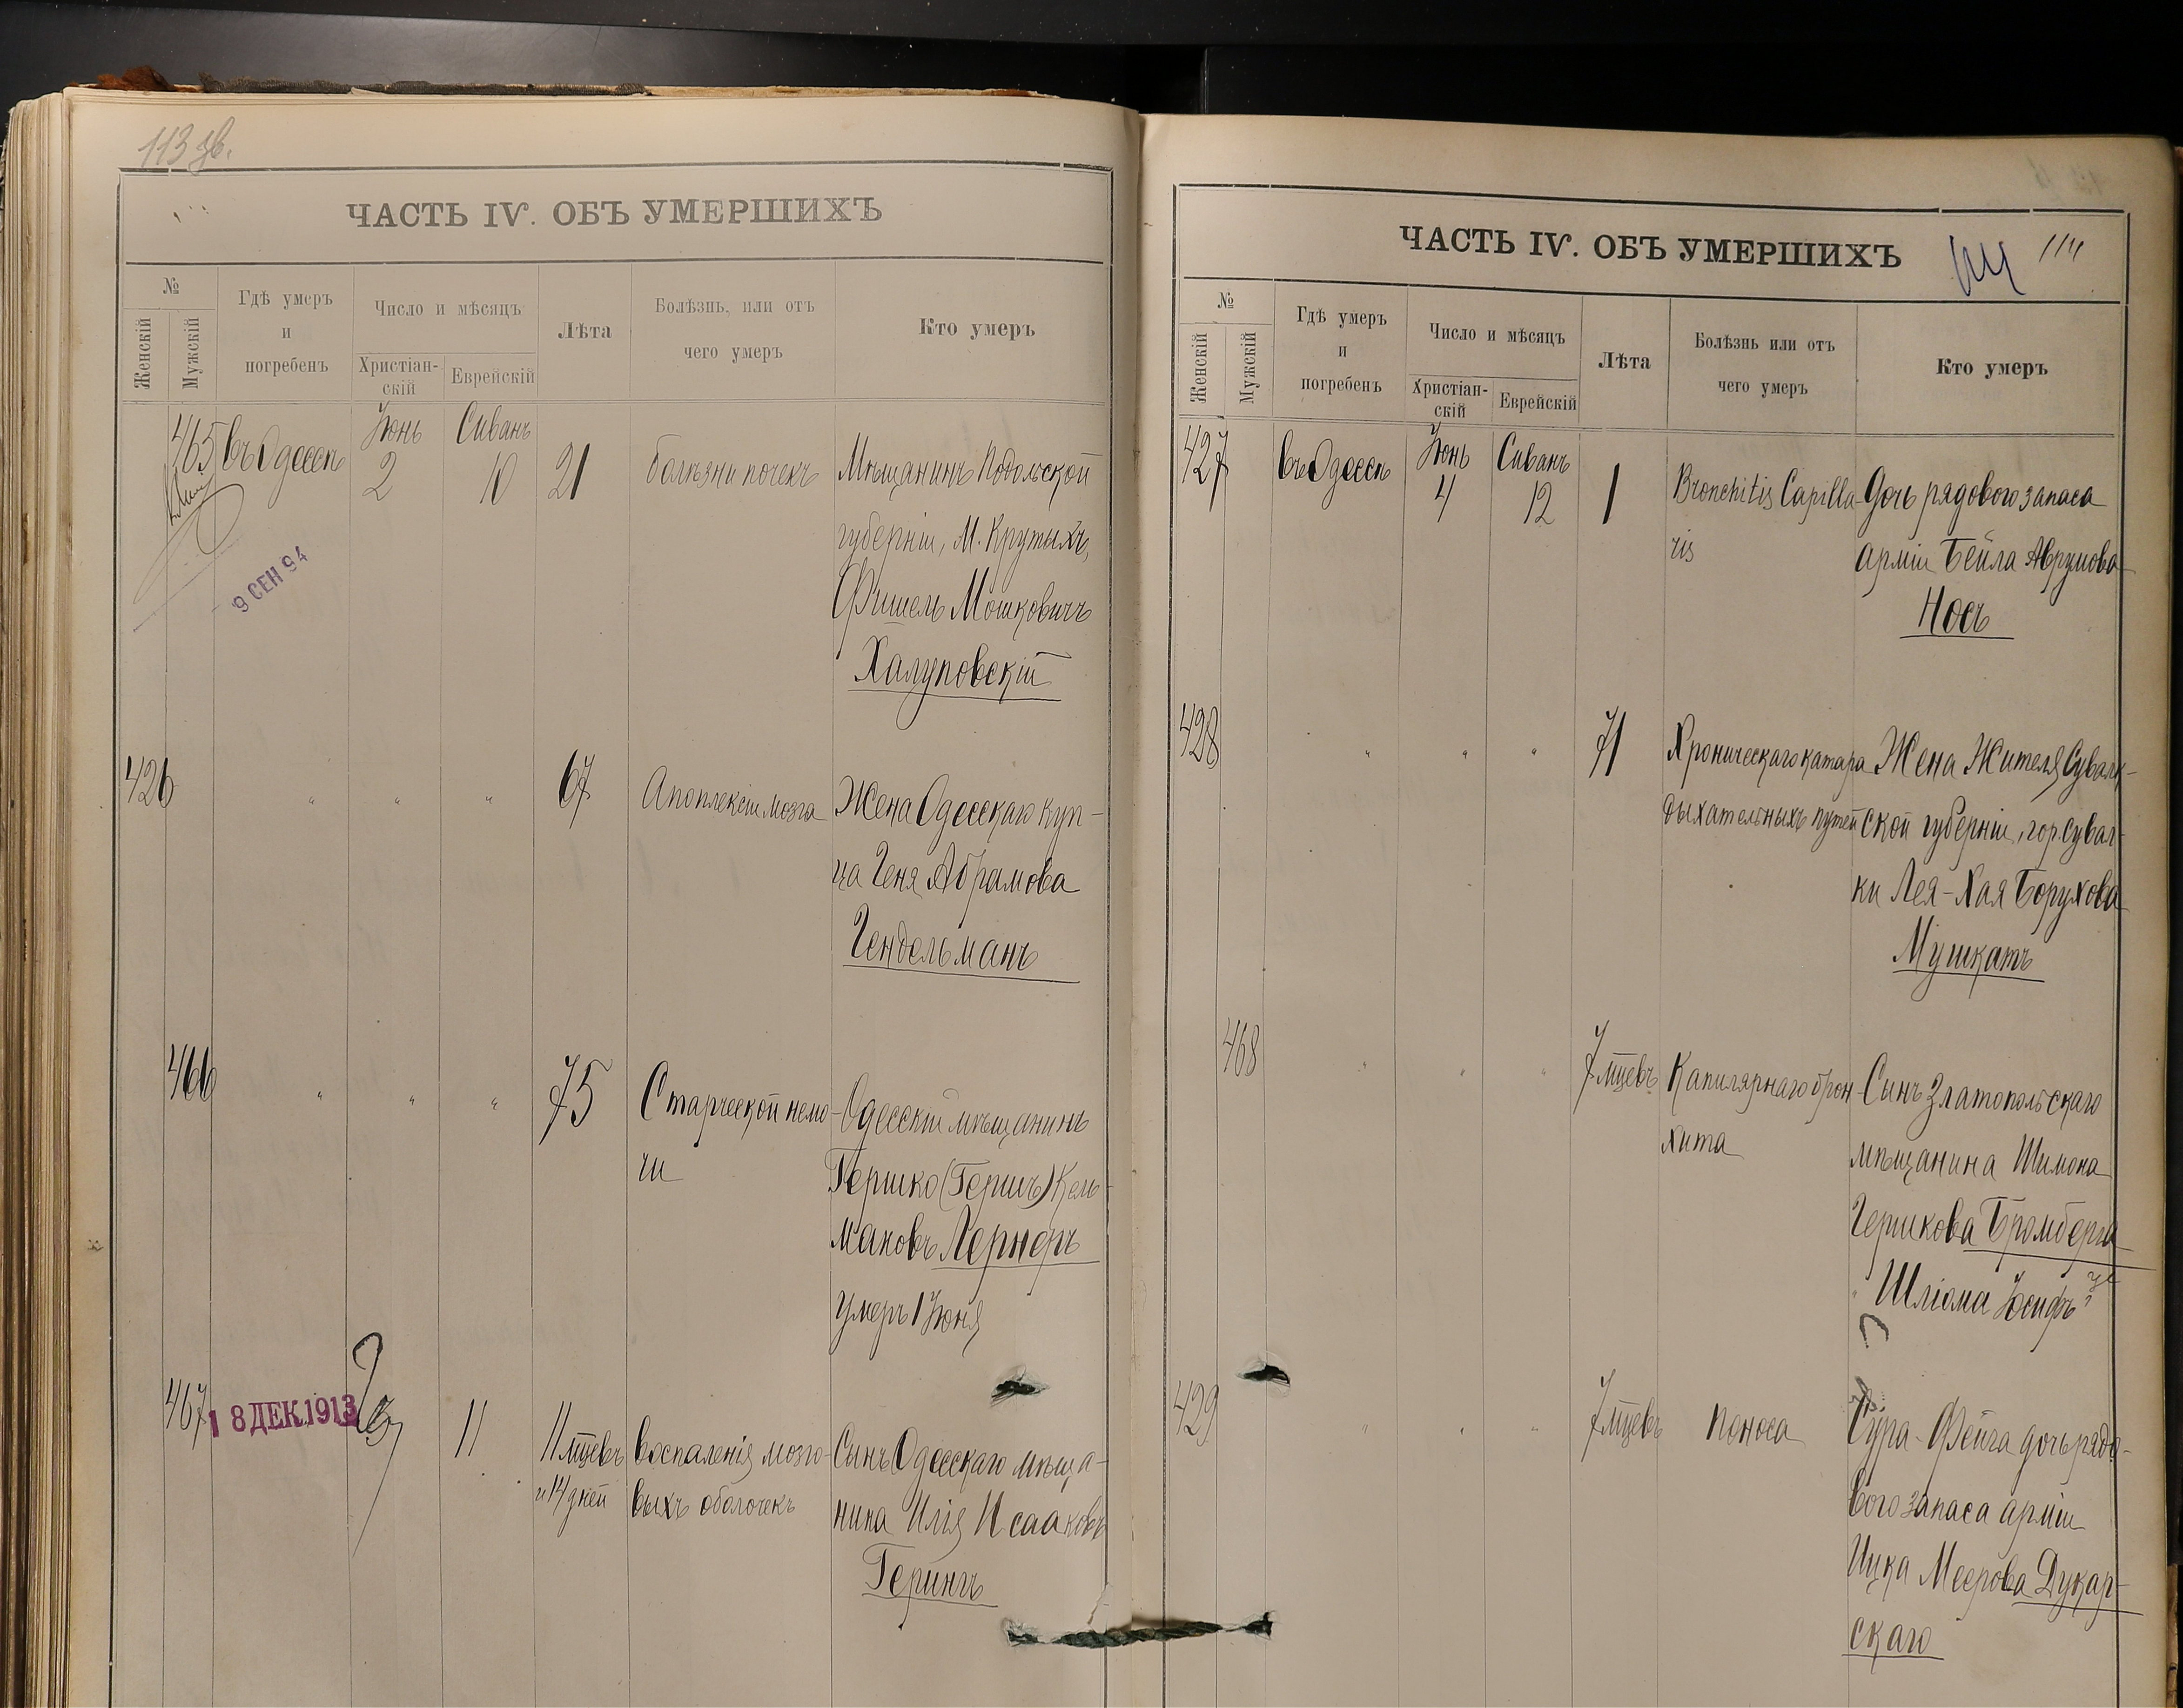 113 об.
ЧАСТЬ IV. ОБЪ УМЕРШИХЪ
№
Женскій
Мужскій
Гдѣ умеръ
и
погребенъ
Число и мѣсяцъ
Христіан-
скій
Еврейскій
Лѣта
Болѣзнь, или отъ
чего умеръ
Кто умеръ
465 въ Одессѣ Іюнь 2 Сиванъ 10 21 болѣзни почекъ Мѣщанинъ Подольской
губерніи, М. Крутыхъ,
Фишель Мошковичъ
Халуповскій
9 СЕН 94
426 " " " 67 Апоплексіи мозга Жена Одесскаго куп-
ца Геня Абрамова
Гендельманъ
466 " " " 75 Старческой немо-
чи
Одесскій мѣщанинъ
Гершко (Гершъ) Кель-
мановъ Лернеръ
умеръ 1 Іюня
467 18 ДЕК. 1913 3 11 11 мцевъ
и 14 дней
воспаленія мозго-
выхъ оболочекъ
Сынъ Одесскаго мѣща-
нина Илія Исааковъ
Герингъ
ЧАСТЬ IV. ОБЪ УМЕРШИХЪ
114
114
№
Женскій
Мужскій
Гдѣ умеръ
и
погребенъ
Число и мѣсяцъ
Христіан-
скій
Еврейскій
Лѣта
Болѣзнь или отъ
чего умеръ
Кто умеръ
427 въ Одессѣ Іюнь 4 Сиванъ 12 1 Bronchitis Capilla-
ris
Дочь рядового запаса
арміи Бейла Аврумова
Носъ
428 " " " 71 Хроническаго катара
дыхательныхъ путей
Жена Жителя Сувалк-
ской губерніи, гор. Сувал-
ки Лея-Хая Борухова
Мушкатъ
468 " " " 7 мцевъ Капилярнаго брон-
хита
Сынъ Златопольскаго
мѣщанина Шимона
Гершкова Бромберга
"Шліома Іосифъ"
429 " " " 7 мцевъ поноса Сура-Фейга дочь рядо-
вого запаса арміи
Ицка Меерова Дукар-
скаго